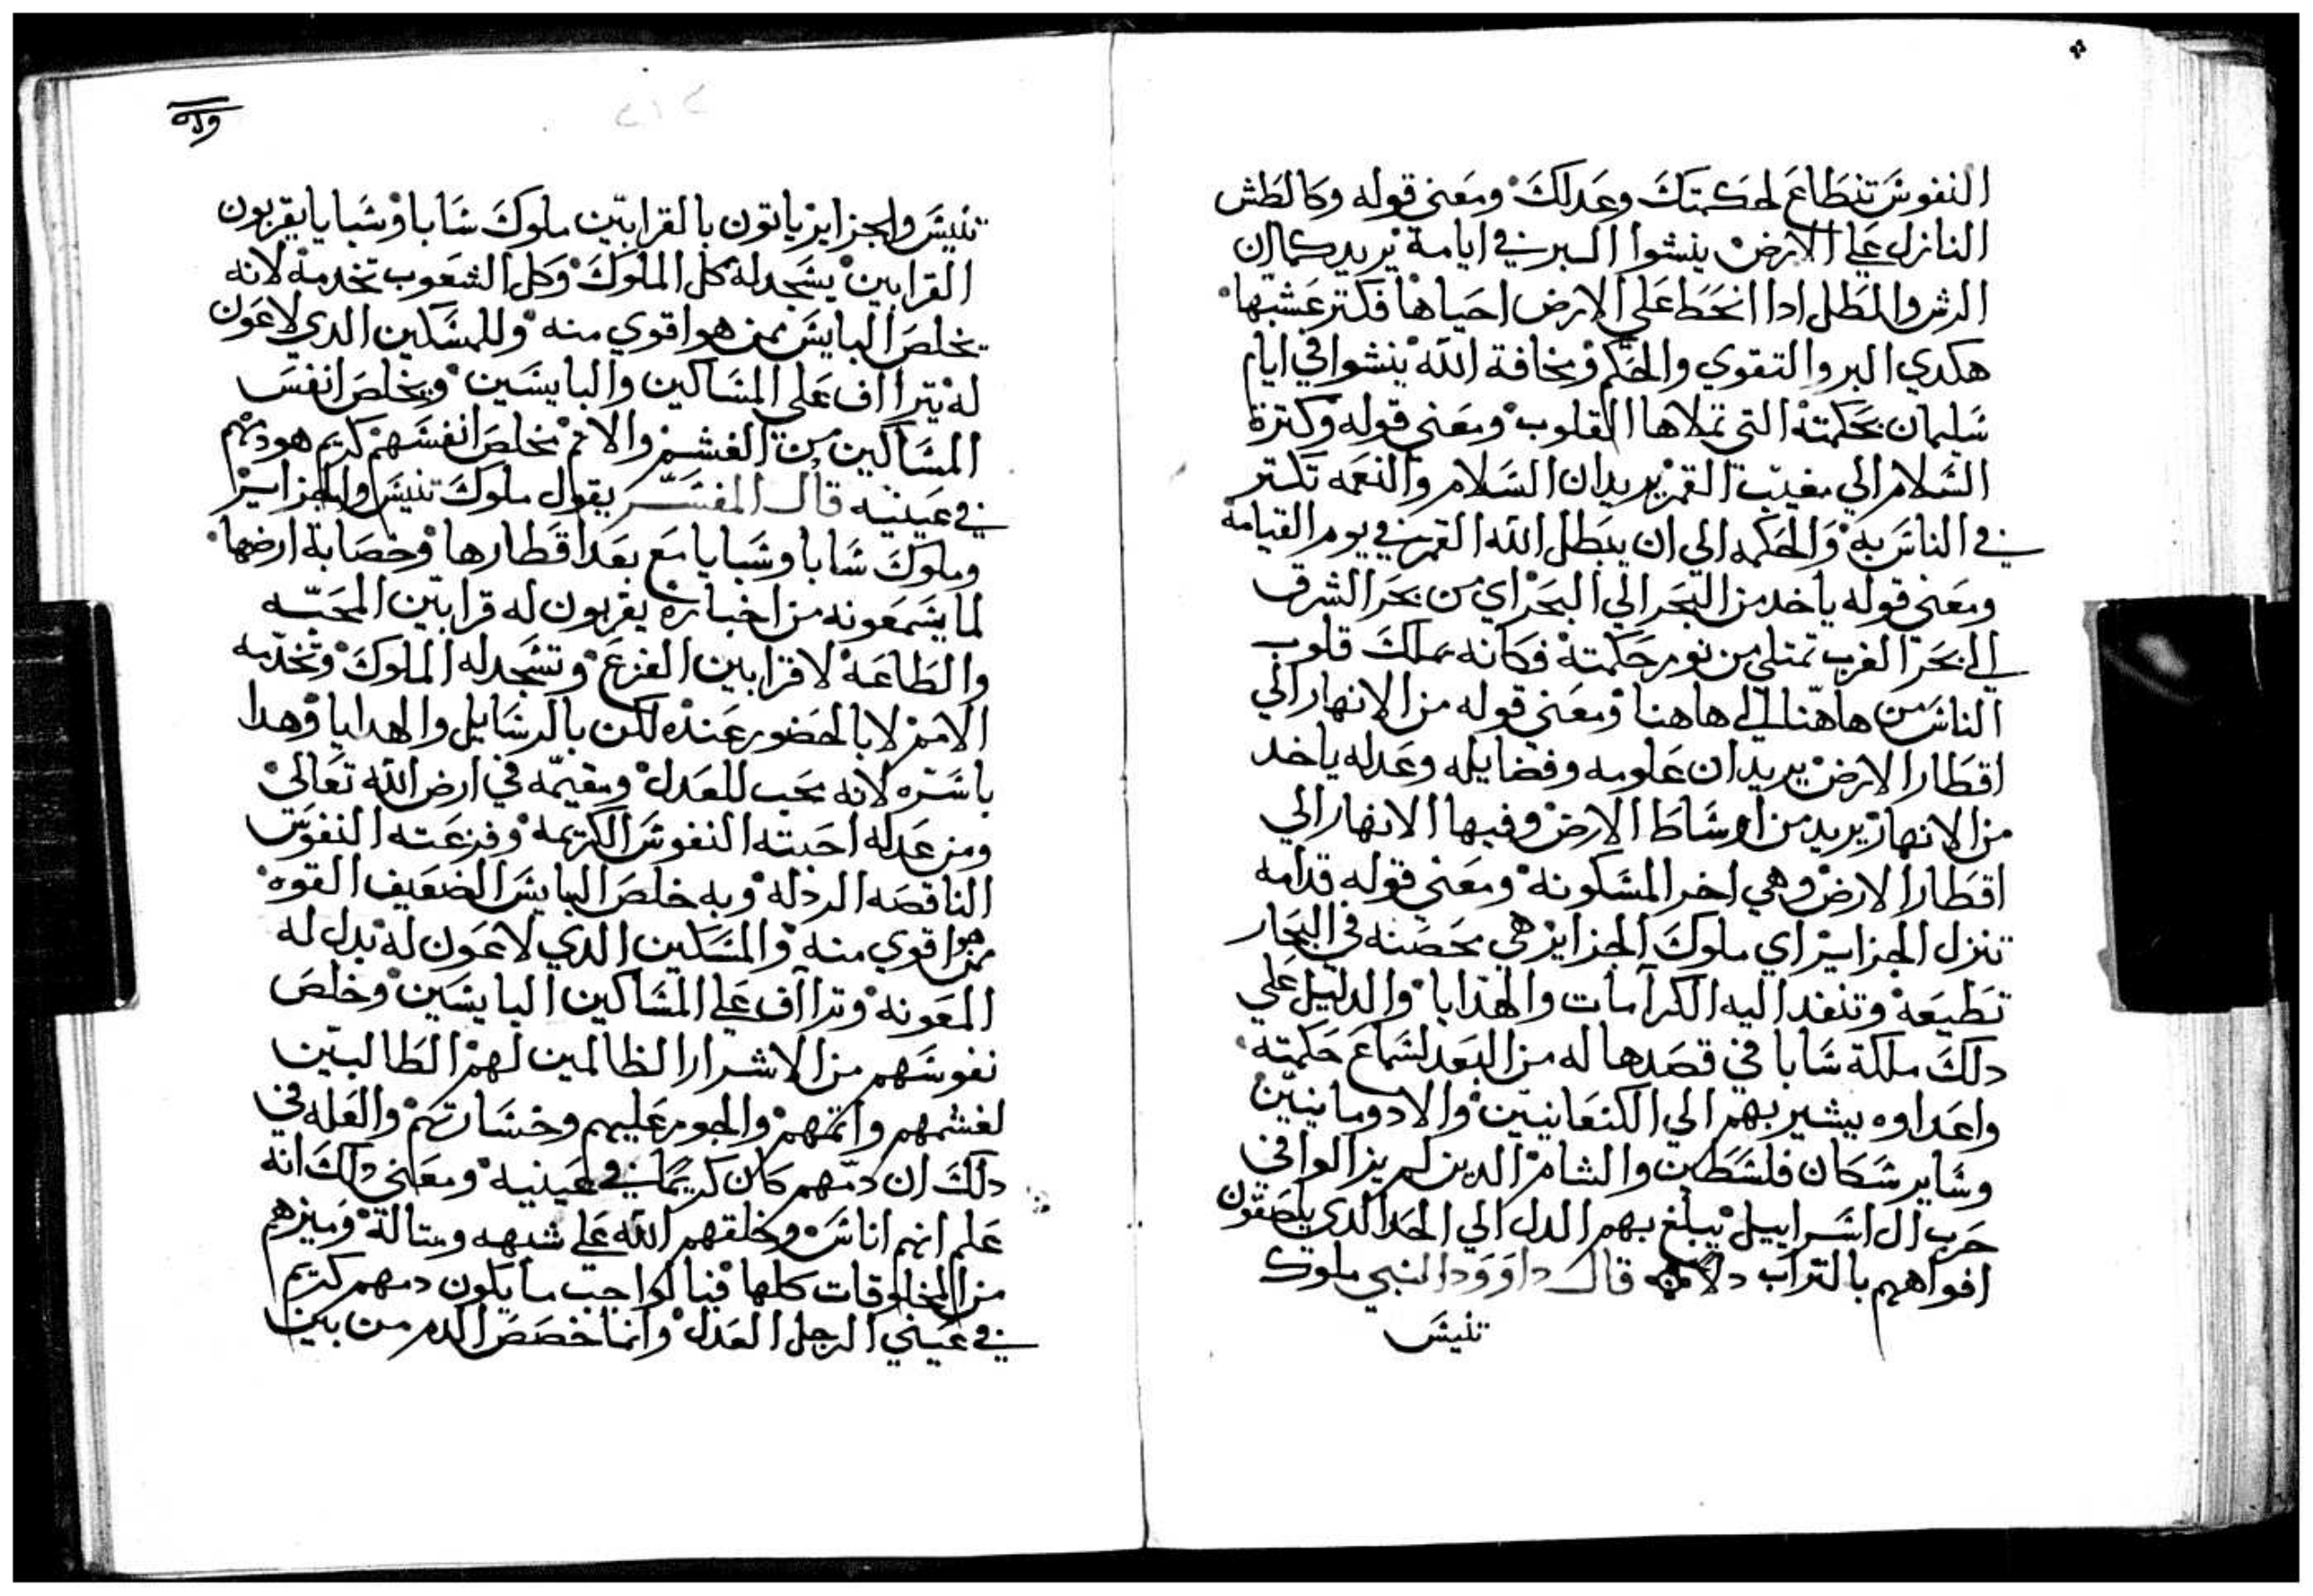 النفوس تنطاع لحكمتك وعدلك ومعني قوله وكالطش
النازل علي الارض ينشوا البر في ايامة يريد كما ان
الرش والطل ادا انحط علي الارض احياها فكتر عشبها
هكدي البر والتقوي والحكم ومخافة الله ينشوا في ايام
سليمان بحكمتة التي تملاها القلوب ومعني قوله وكترة
السلام الي مغيب القمر يريد ان السلام والنعمه تكتر
في الناس به والحكمه الي ان يبطل الله القمر في يوم القيامة
ومعني قوله ياخد من البحر الي البحر اي من بحر الشرق
الي بحر الغرب تمتلي من نور حكمتة فكانه يملك قلوب
الناس من هاهنا الي هاهنا ومعني قوله من الانهار الي
اقطار الارض يريد ان علومه وفضايله وعدله ياخد
من الانهار يريد من اوساط الارض وفيها الانهار الي
اقطار الارض وهي اخر المسكونة ومعني قوله قدامه
تنزل الجزاير اي ملوك الجزاير هي محصنه في البحار
تطيعة وتنفد اليه الكرامات والهدايا والدليل علي
دلك ملكة سابا في قصدها له من البعد لسماع حكمته
واعداوه يشير بهم الي الكنعانيين والادومانيين
وساير سكان فلسطين والشام الدين لم يزالوا في
حرب ال اسراييل يبلغ بهم الدل الي الحد الدي يلصقون
افواههم بالتراب قال داوود النبي ملوك
تنيس
وله
تنيس والجزاير ياتون بالقرابين ملوك سابا وشبايا يقربون
القرابين يسجد له كل الملوك وكل الشعوب تخدمة لانه
يخلص البايس ممن هو اقوي منه وللمسكين الدي لا عون
له يتراأف علي المساكين والبايسين ويخلص انفس
المساكين من الغشم والاتم يخلص انفسهم كريم هو دمهم
في عينيه قال المفسر يقول ملوك تنيس والجزاير
وملوك سابا وشبايا مع بعد اقطارها وخصابة ارضها
لما يسمعونه من اخباره يقربون له قرابين المحبه
والطاعة لا قرابين الفزع وتسجد له الملوك وتخدمه
الامم لا بالحضور عنده لكن بالرسايل والهدايا وهدا
باسره لانه محب للعدل ومقيمه في ارض الله تعالي
ومن عدله احبته النفوس الكريمه وفزعته النفوس
الناقصه الردله وبه خلص البايس الضعيف القوه
ممن هو اقوي منه والمسكين الدي لا عون له بدل له
المعونه وتراأف علي المساكين البايسين وخلص
نفوسهم من الاشرار الظالمين لهم الطالبين
لغشمهم واتمهم والجور عليهم وخسارتهم والعله في
دلك ان دمهم كان كريما في عينيه ومعني دلك انه
علم انهم اناس وخلقهم الله علي شبهه ومتالة وميزهم
من المخلوقات كلها فبالواجب ما يكون دمهم كريم
في عيني الرجل العدل وانما خصص الدم من بين